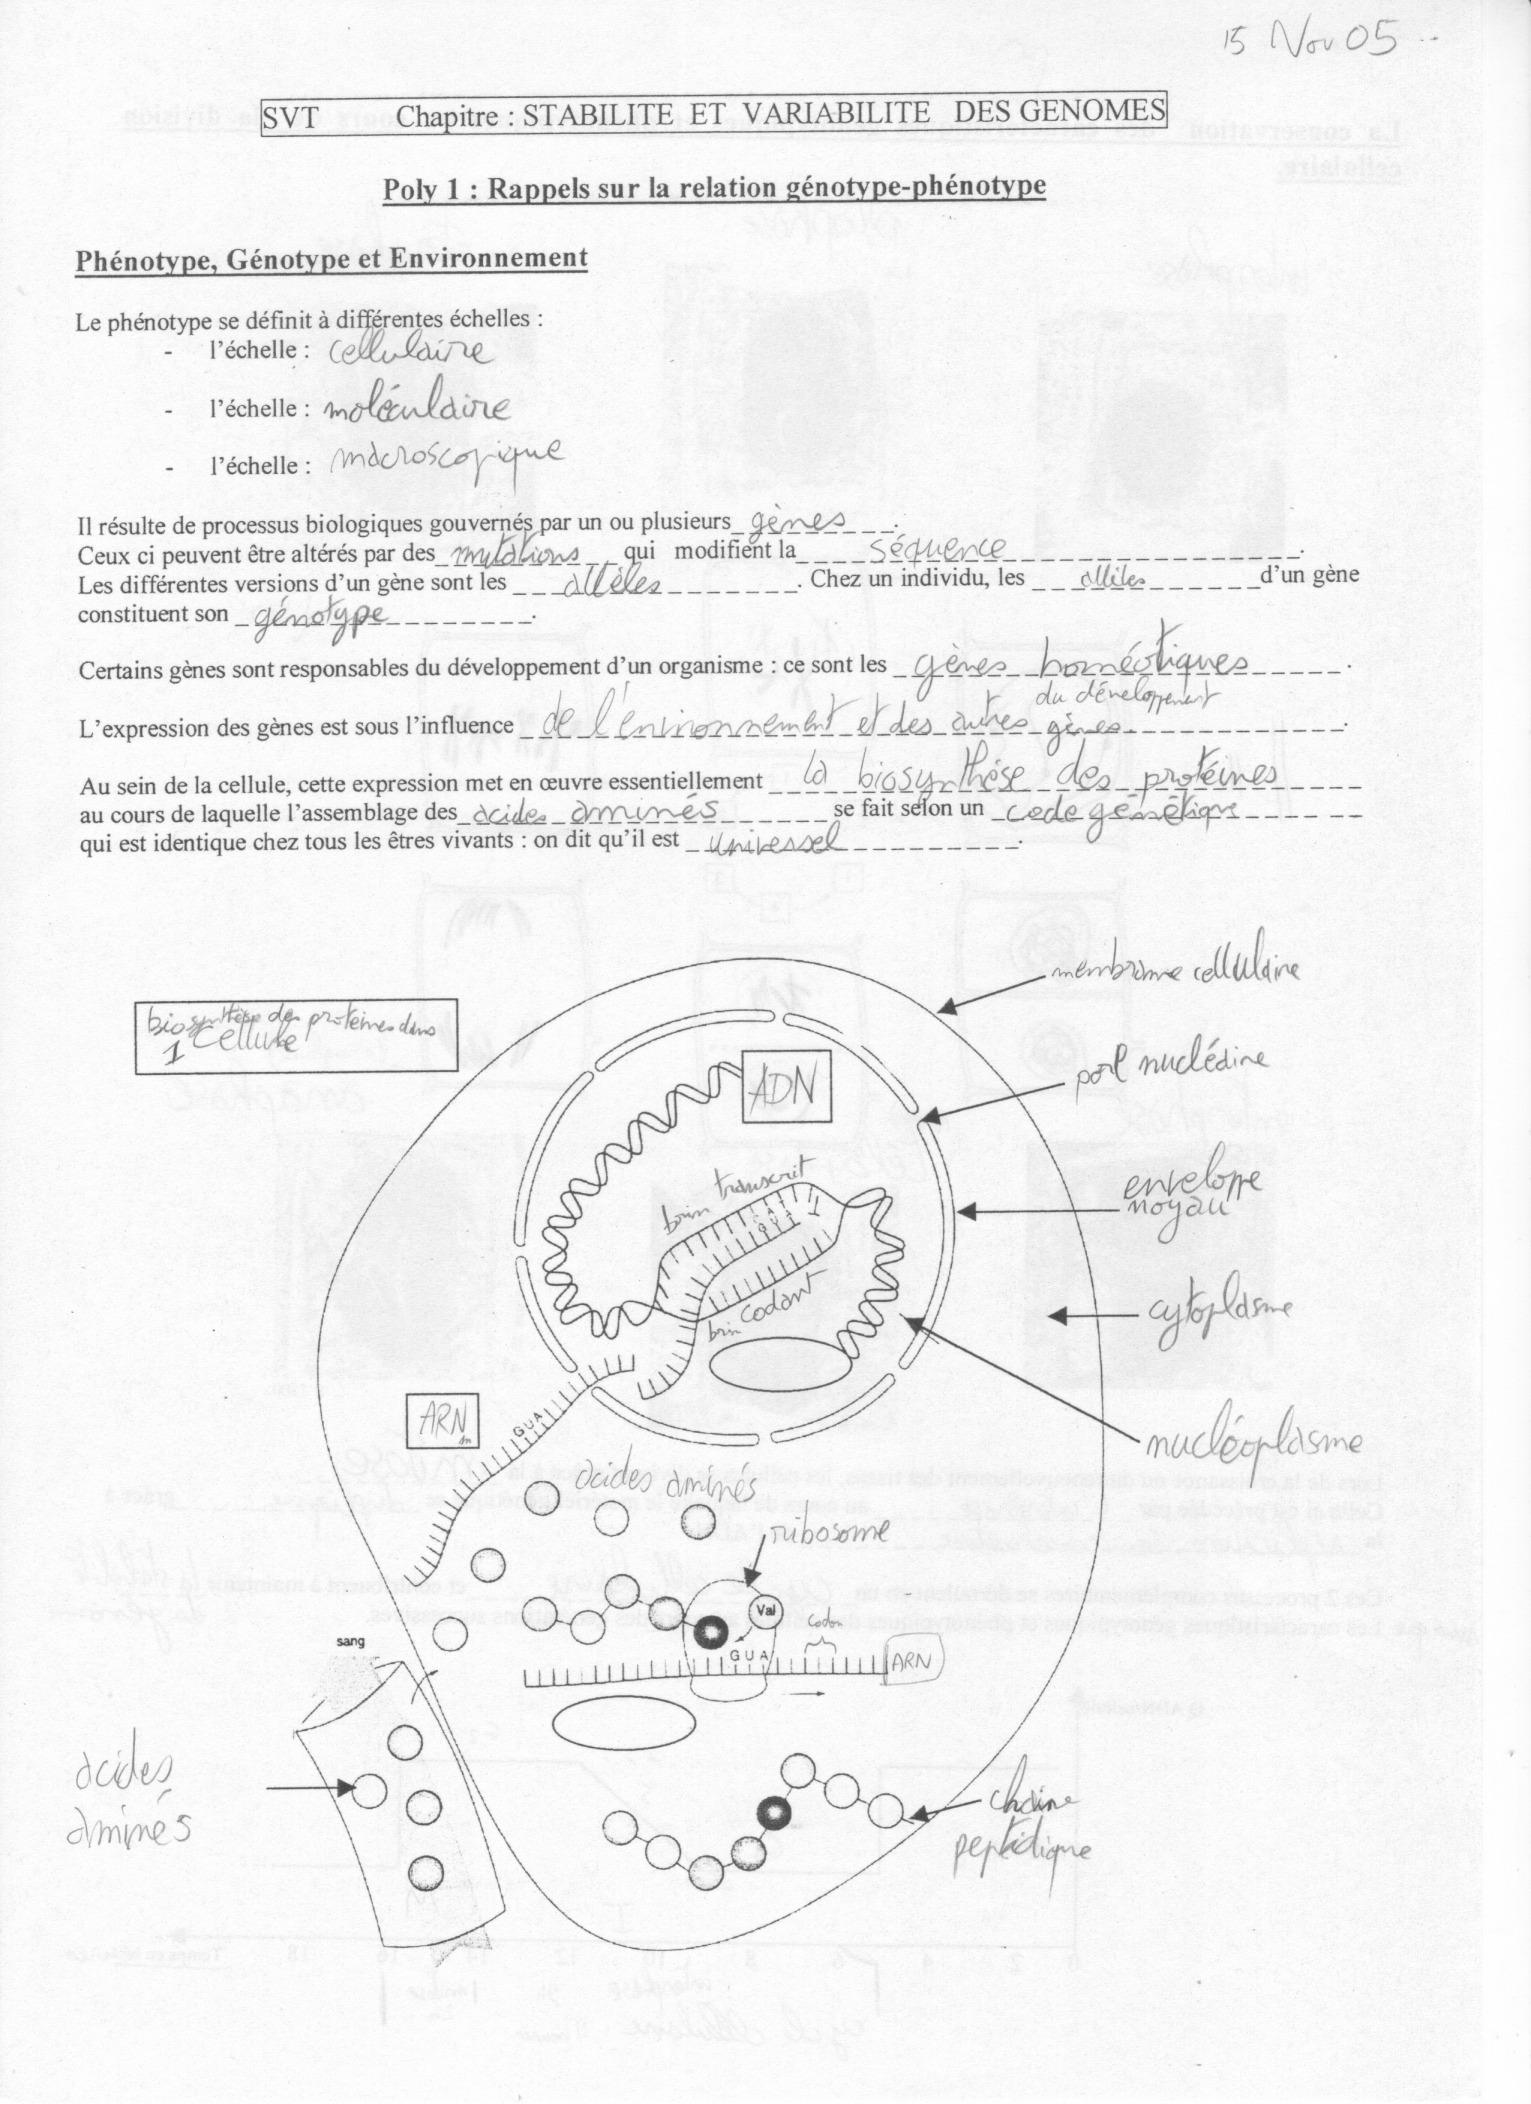 15 Nov 05
SVT Chapitre : STABILITE ET VARIABILITE DES GENOMES
Poly 1 : Rappels sur la relation génotype-phénotype
Phénotype, Génotype et Environnement
Le phénotype se définit à différentes échelles :
- l'échelle : cellulaire
- l'échelle : moléculaire
- l'échelle : macroscopique
Il résulte de processus biologiques gouvernés par un ou plusieurs gènes.
Ceux ci peuvent être altérés par des mutations qui modifient la séquence.
Les différentes versions d'un gène sont les allèles. Chez un individu, les allèles d'un gène
constituent son génotype.
Certains gènes sont responsables du développement d'un organisme : ce sont les gènes homéotiques.
du développement
L'expression des gènes est sous l'influence de l'environnement et des autres gènes.
Au sein de la cellule, cette expression met en œuvre essentiellement la biosynthèse des protéines
au cours de laquelle l'assemblage des acides aminés se fait selon un code génétique
qui est identique chez tous les êtres vivants : on dit qu'il est universel.
membrane cellulaire
biosynthèse des protéines dans
1 cellule
pore nucléaire
ADN
brin transcrit
enveloppe
noyau
CAT
GUA
brin codant
cytoplasme
ARN m
GUA
nucléoplasme
acides aminés
ribosome
Val
codon
sang
GUA
ARN
acides
aminés
chaine
peptidique